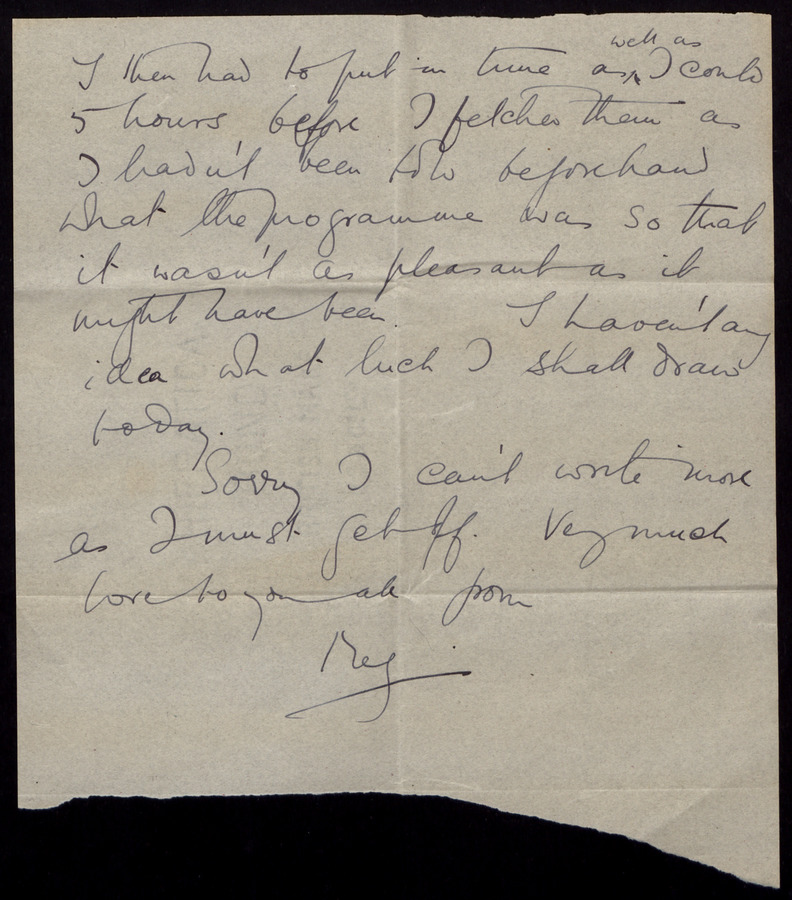 I then had to put in time as well as I could
5 hours before I fetched them as
I hadn't been told beforehand
what the programme was so that
it wasn't as pleasant as it
might have been. I haven't any
idea what luck I shall draw
today.
Sorry I can't write more
as I must get off. Very much
love to you all from